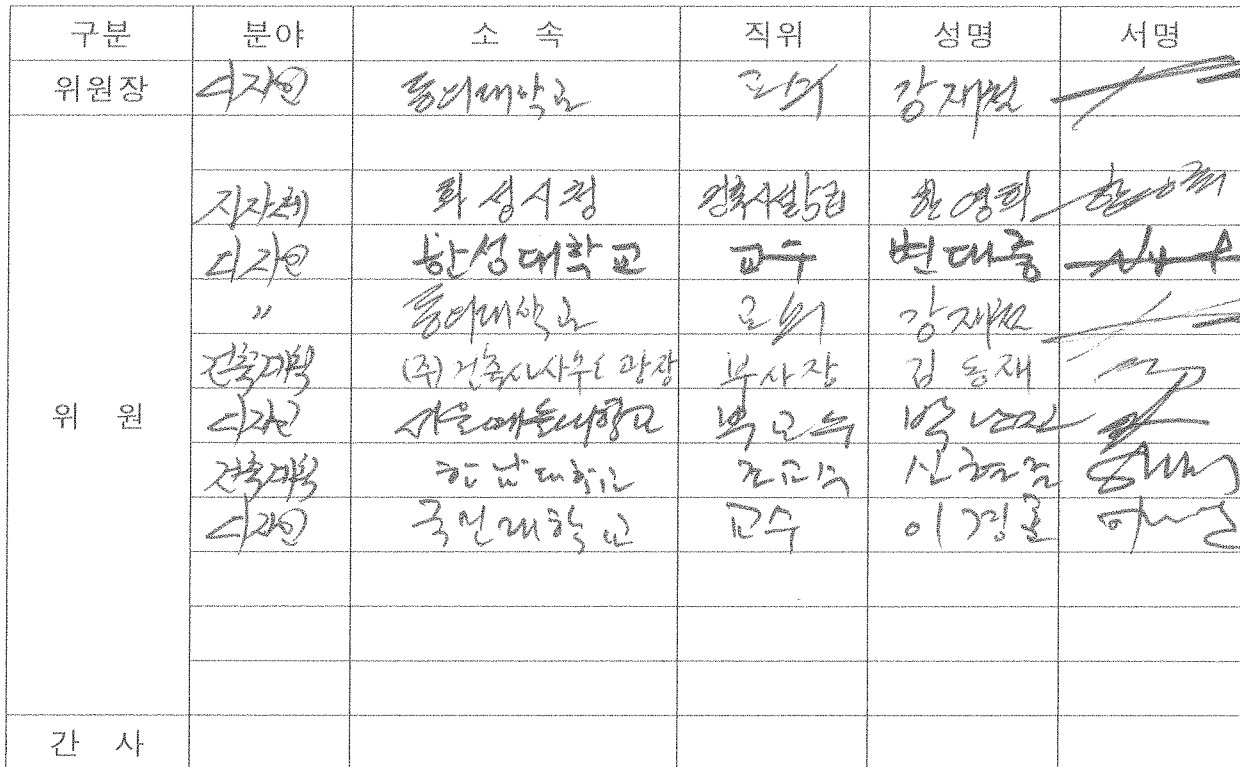 구분 분야 소 속 직위 성명 서명
위원장 디자인 동아대학교 교수 강재철
지자체 화성시청 건축시설팀장 한영희
디자인 한성대학교 교수 변대중
" 동아대학교 교수 강재철
건축계획 (주)건축사사무소 광장 부사장 김동재
위 원 디자인 부교수
건축계획 한남대학교 조교수 신현준
디자인 국민대학교 교수 이경훈
간 사